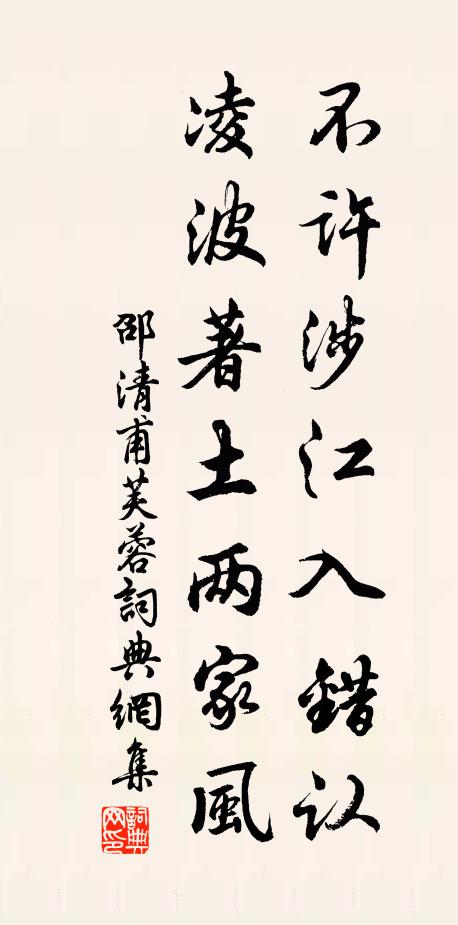 不许涉江入错认
凌波著土两家風
邵清甫芙蓉詞典網集
詞典网印